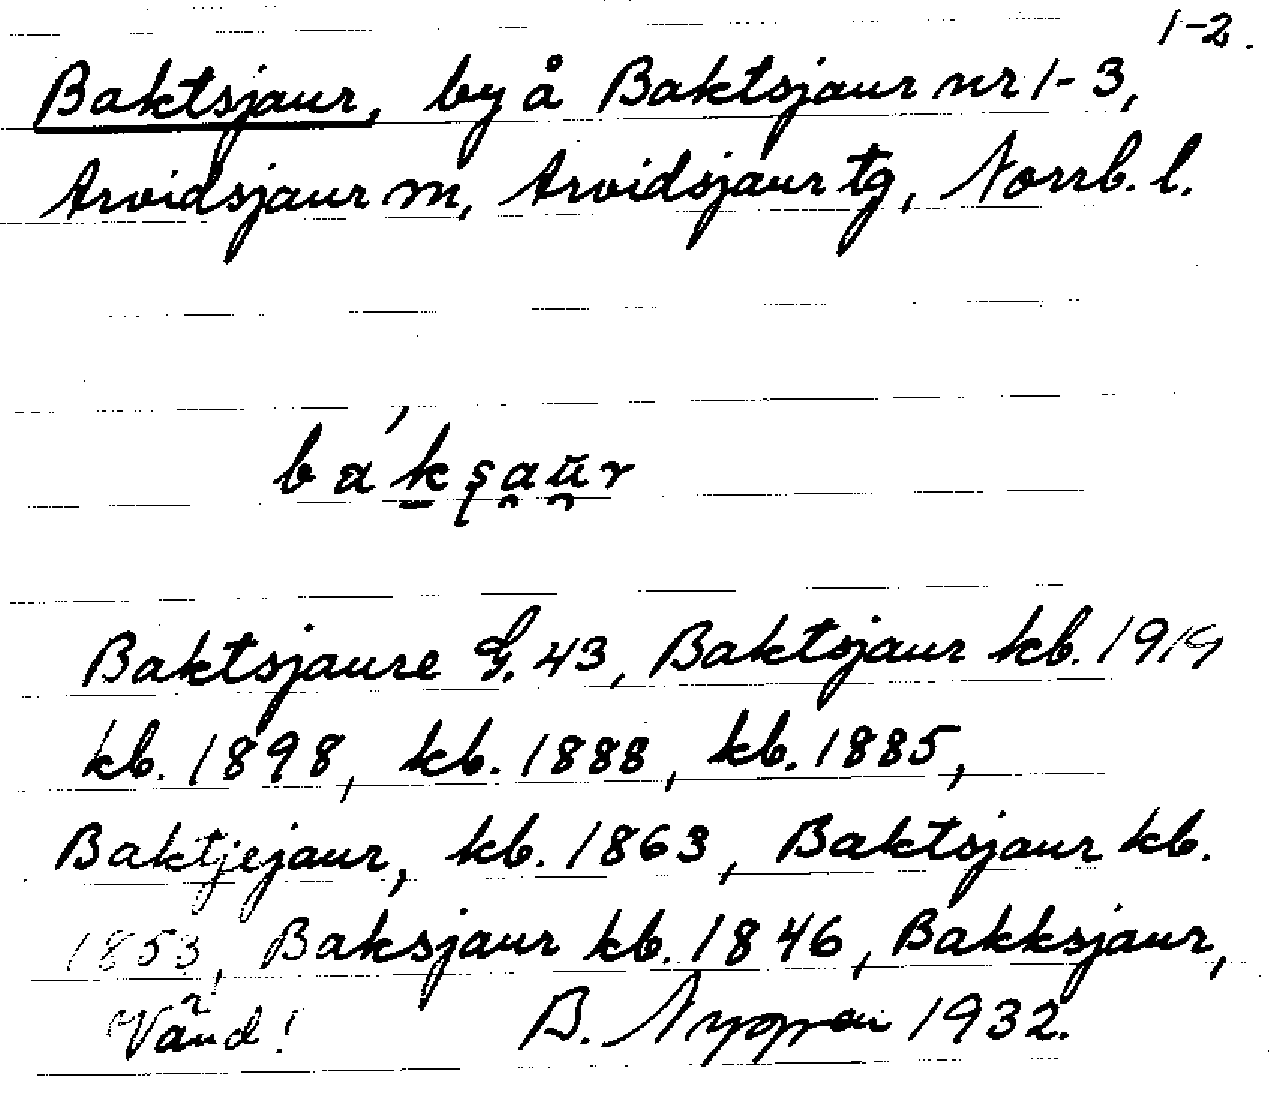 1-2.
Baktsjaur, by å Baktsjaur nr 1-3,
Arvidsjaur m, Arvidsjaur tg, Norrb. l.
Baktsjaure G. 43, Baktsjaur kb. 1919
kb. 1898, kb. 1888, kb. 1885,
Baktjejaur, kb. 1863, Baktsjaur kb.
1853, Baksjaur kb. 1846, Bakksjaur,
Vänd! B. 1932.